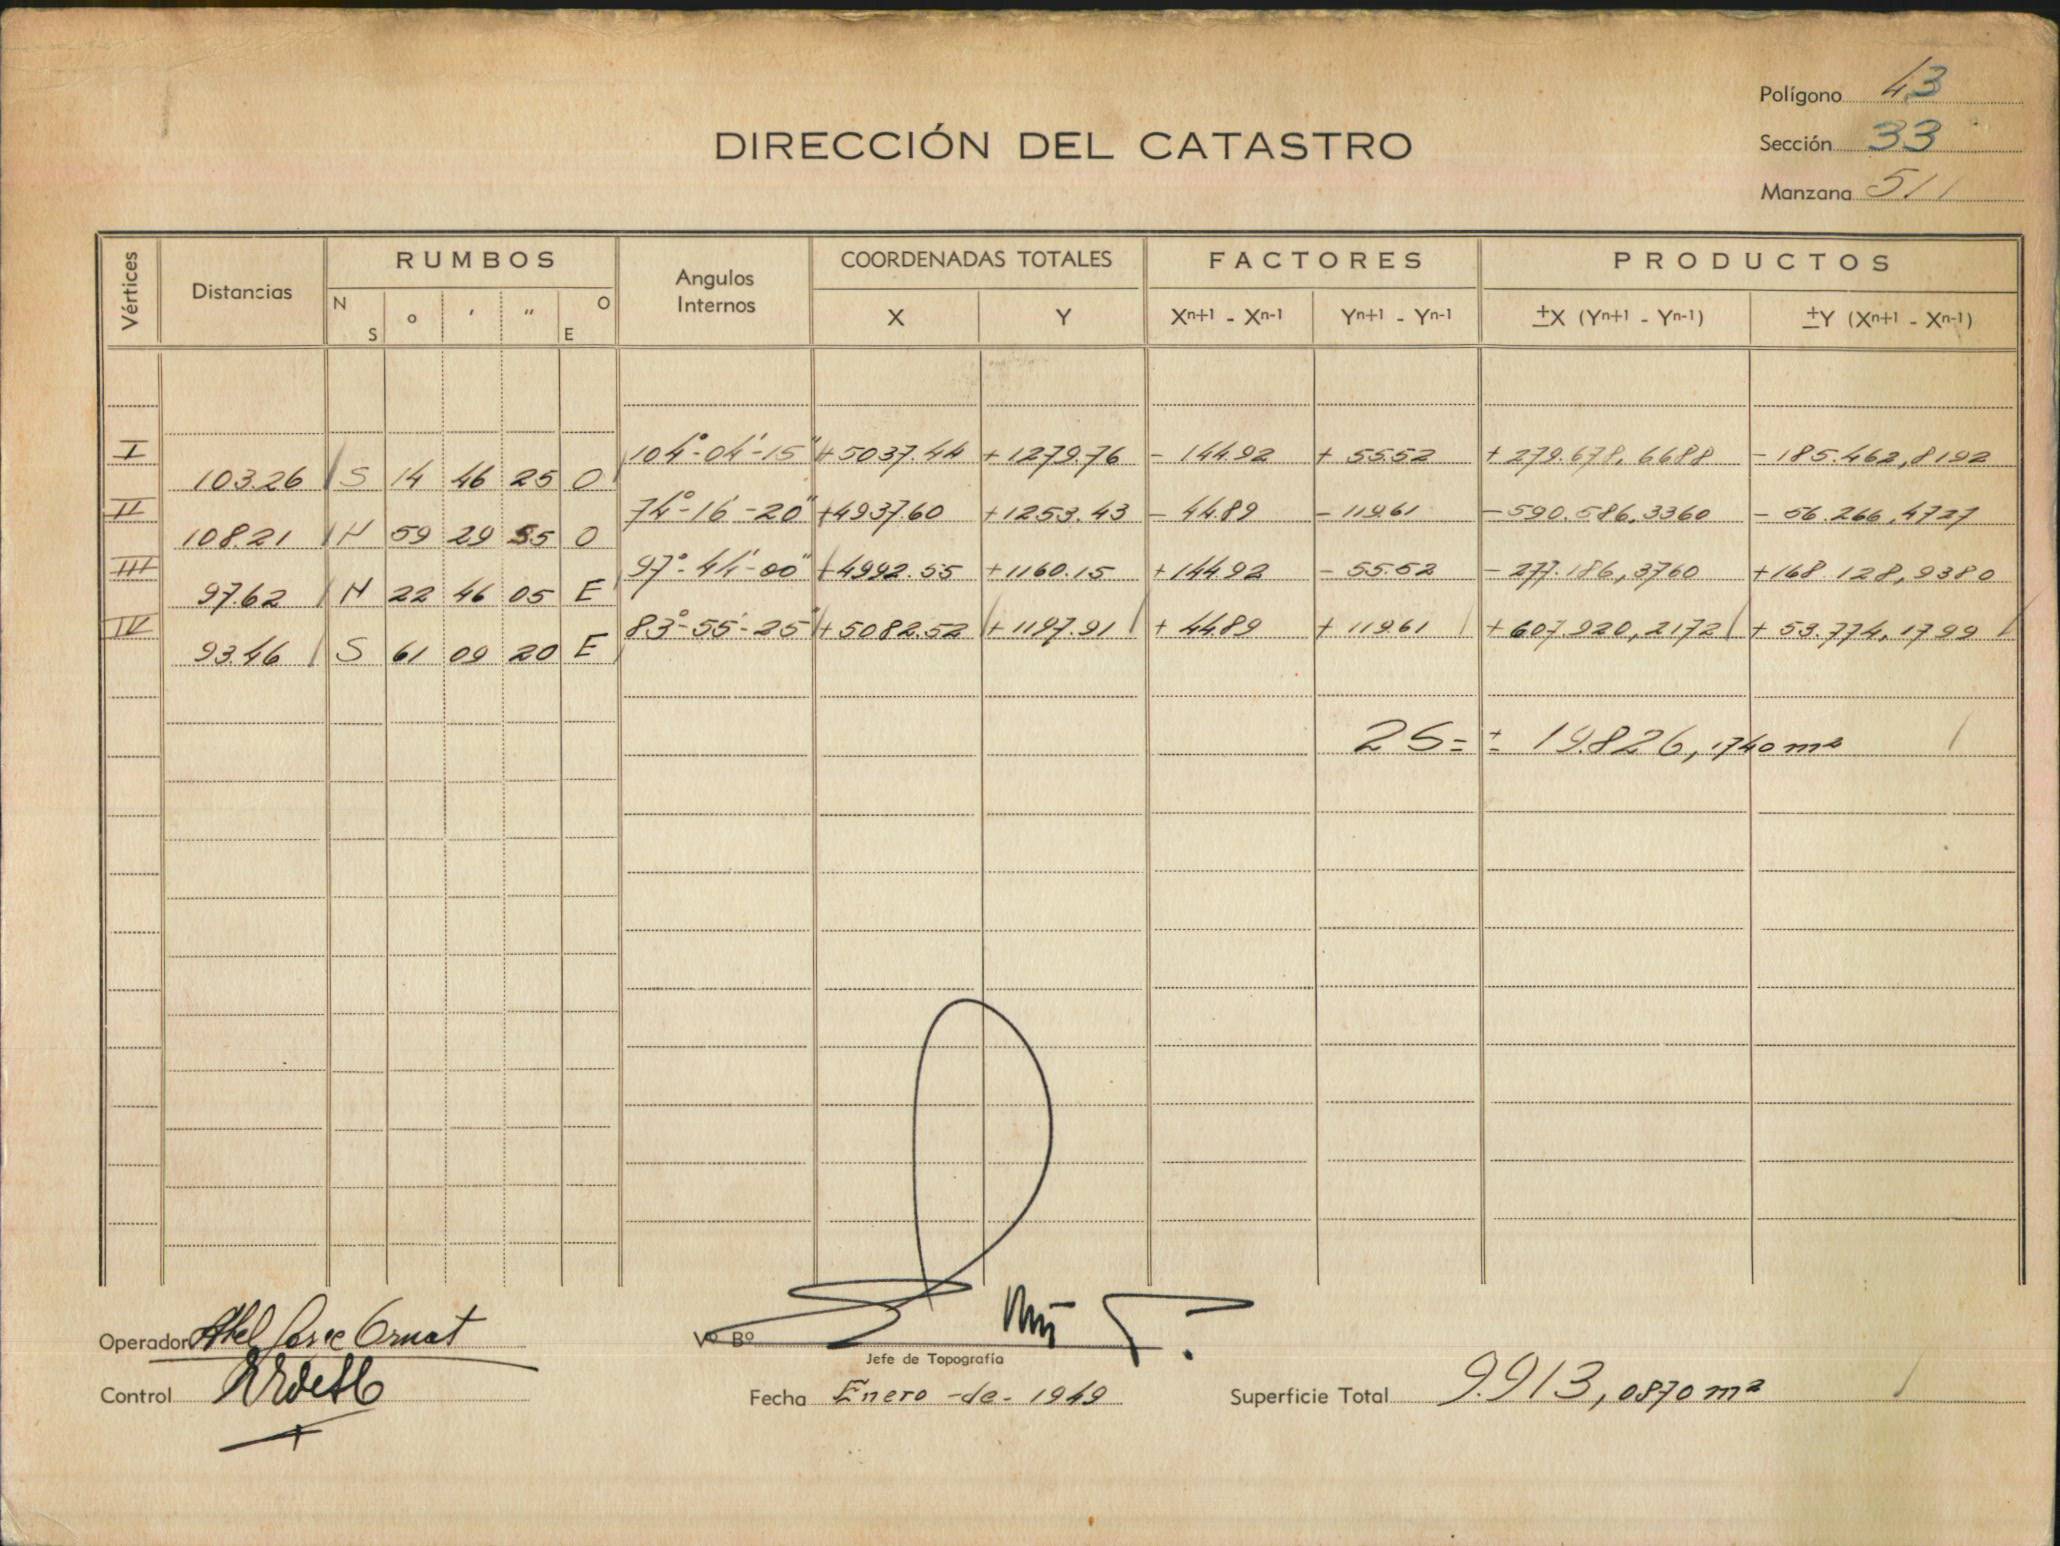 Polígono 43
DIRECCIÓN DEL CATASTRO
Sección 33
Manzana 511
Vértices Distancias RUMBOS Angulos Internos COORDENADAS TOTALES FACTORES PRODUCTOS
N S o ' " O E X Y Xn+1 - Xn-1 Yn+1 - Yn-1 ±X (Yn+1 - Yn-1) ±Y (Xn+1 - Xn-1)
I 104°-04'-15" +5037.44 +1279.76 - 144.92 + 55.52 +279.678,6688 -185.462,8192
103.26 S 14 46 25 O
II 74°-16'-20" +4937.60 +1253.43 - 44.89 - 119.61 -590.586,3360 - 56.266,4727
108.21 N 59 29 55 O
III 97°-44'-00" +4992.55 +1160.15 +144.92 - 55.52 -277.186,3760 +168.128,9380
97.62 N 22 46 05 E
IV 83°-55'-25" +5082.52 +1197.91 + 44.89 + 119.61 +607.920,2172 + 53.774,1799
93.46 S 61 09 20 E
2S = ± 19.826,1740 m²
Operador Abel
Vº Bº
Jefe de Topografía
Control
Fecha Enero -de- 1949
Superficie Total 9.913,0870 m²